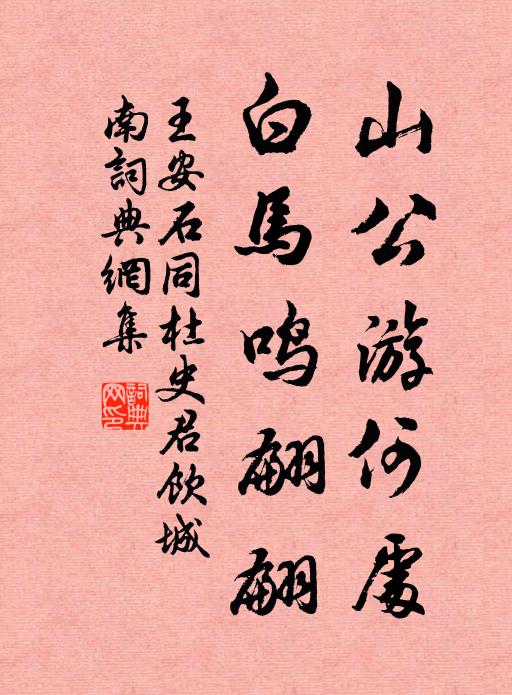 山公游何處
白馬鸣翩翩
王安石同杜史君飲城
南詞典網集
詞典
网印